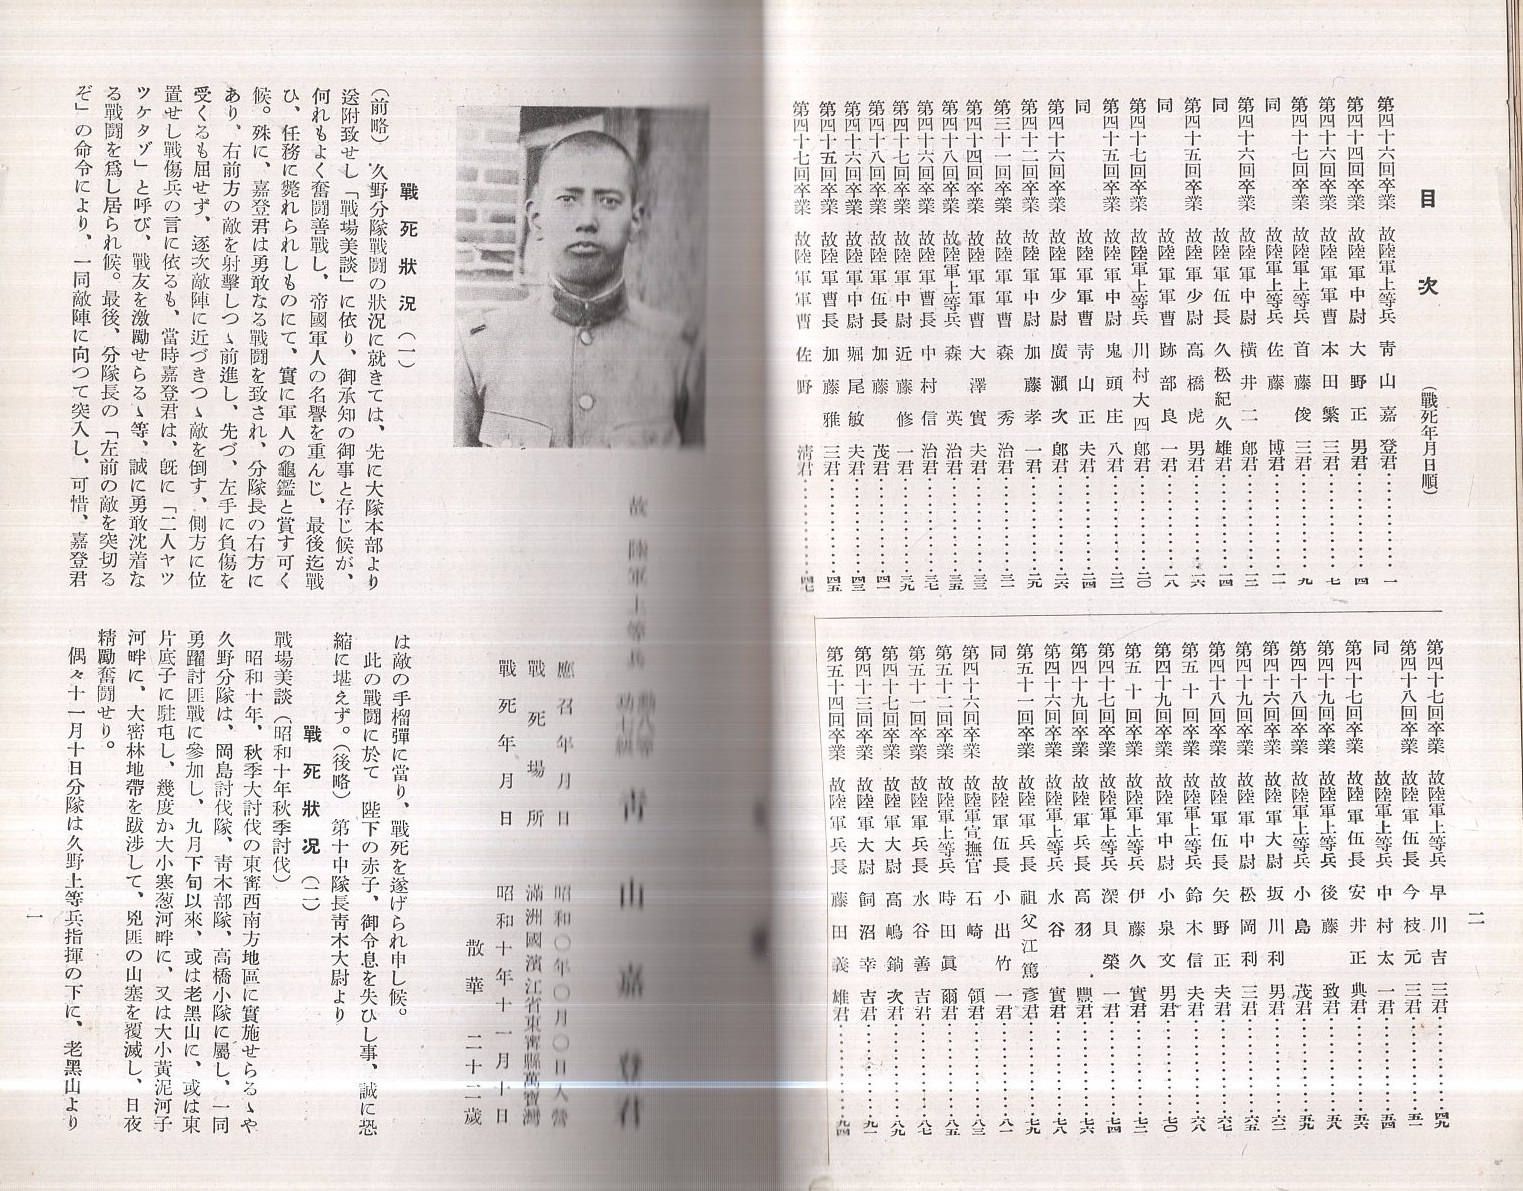 目次 （戰死年月日順）
第四十六回卒業 故陸軍上等兵 靑山嘉登君…………一
第四十四回卒業 故陸軍中尉 大野正男君…………四
第四十六回卒業 故陸軍軍曹 本田繁三君…………七
第四十七回卒業 故陸軍上等兵 首藤俊三君…………九
同 故陸軍上等兵 佐藤博君…………一一
第四十六回卒業 故陸軍中尉 橫井二郎君…………一三
同 故陸軍伍長 久松紀久雄君…………一四
第四十五回卒業 故陸軍少尉 高橋虎男君…………一六
同 故陸軍軍曹 跡部良一君…………一八
第四十七回卒業 故陸軍上等兵 川村大四郞君…………二〇
第四十五回卒業 故陸軍中尉 鬼頭庄八君…………二二
同 故陸軍軍曹 靑山正夫君…………二四
第四十六回卒業 故陸軍少尉 廣瀨次郞君…………二六
第四十二回卒業 故陸軍中尉 加藤孝一君…………二九
第三十一回卒業 故陸軍軍曹 森秀治君…………三一
第四十四回卒業 故陸軍軍曹 大澤實夫君…………三三
第四十八回卒業 故陸軍上等兵 森英治君…………三五
第四十六回卒業 故陸軍曹長 中村信治君…………三七
第四十七回卒業 故陸軍中尉 近藤修一君…………三九
第四十八回卒業 故陸軍伍長 加藤茂君…………四一
第四十六回卒業 故陸軍中尉 堀尾敏夫君…………四三
第四十五回卒業 故陸軍曹長 加藤雅三君…………四五
第四十七回卒業 故陸軍軍曹 佐野淸君…………四七
第四十七回卒業 故陸軍上等兵 早川吉三君…………四九
第四十八回卒業 故陸軍伍長 今枝元三君…………五一
同 故陸軍上等兵 中村太一君…………五四
第四十七回卒業 故陸軍伍長 安井正典君…………五六
第四十九回卒業 故陸軍上等兵 後藤致君…………五八
第四十八回卒業 故陸軍上等兵 小島茂君…………五九
第四十六回卒業 故陸軍大尉 坂川利男君…………六二
第四十九回卒業 故陸軍中尉 松岡利三君…………六五
第四十八回卒業 故陸軍伍長 矢野正夫君…………六七
第五十回卒業 故陸軍上等兵 鈴木信夫君…………六八
第四十九回卒業 故陸軍中尉 小泉文男君…………七〇
第五十回卒業 故陸軍上等兵 伊藤久實君…………七二
第四十七回卒業 故陸軍上等兵 深貝榮一君…………七四
第四十九回卒業 故陸軍兵長 高羽豐君…………七六
第四十六回卒業 故陸軍上等兵 水谷實君…………七八
第五十一回卒業 故陸軍兵長 祖父江篤彥君…………七九
同 故陸軍伍長 小出竹一君…………八一
第四十六回卒業 故陸軍宣撫官 石崎領君…………八三
第五十二回卒業 故陸軍上等兵 時田眞爾君…………八五
第五十一回卒業 故陸軍兵長 水谷善吉君…………八七
第四十七回卒業 故陸軍大尉 高嶋銷次君…………八九
第四十三回卒業 故陸軍大尉 飼沼幸吉君…………九一
第五十四回卒業 故陸軍兵長 藤田義雄君…………九四
二
故陸軍上等兵 勳八等功七級 靑山嘉登君
應召年月日 昭和〇年〇月〇日入營
戰死場所 滿洲國濱江省東寗縣萬寶灣
戰死年月日 昭和十年十一月十日
散華 二十二歲
戰死狀況（一）
（前略）久野分隊戰鬪の狀況に就きては、先に大隊本部より
送附致せし「戰場美談」に依り、御承知の御事と存じ候が、
何れもよく奮鬪善戰し、帝國軍人の名譽を重んじ、最後迄戰
ひ、任務に斃れられしものにて、實に軍人の龜鑑と賞す可く
候。殊に、嘉登君は勇敢なる戰鬪を致され、分隊長の右方に
あり、右前方の敵を射擊しつゝ前進し、先づ、左手に負傷を
受くるも屈せず、逐次敵陣に近づきつゝ敵を倒す、側方に位
置せし戰傷兵の言に依るも、當時嘉登君は、旣に「二人ヤツ
ツケタゾ」と呼び、戰友を激勵せらるゝ等、誠に勇敢沈着な
る戰鬪を爲し居られ候。最後、分隊長の「左前の敵を突切る
ぞ」の命令により、一同敵陣に向つて突入し、可惜、嘉登君
は敵の手榴彈に當り、戰死を遂げられ申し候。
此の戰鬪に於て 陛下の赤子、御令息を失ひし事、誠に恐
縮に堪えず。（後略） 第十中隊長靑木大尉より
戰死狀況（二）
戰場美談（昭和十年秋季討伐）
昭和十年、秋季大討伐の東寗西南方地區に實施せらるゝや
久野分隊は、岡島討伐隊、靑木部隊、高橋小隊に屬し、一同
勇躍討匪戰に參加し、九月下旬以來、或は老黑山に、或は東
片底子に駐屯し、幾度か大小寒葱河畔に、又は大小黃泥河子
河畔に、大密林地帶を跋涉して、兇匪の山塞を覆滅し、日夜
精勵奮鬪せり。
偶々十一月十日分隊は久野上等兵指揮の下に、老黑山より
一